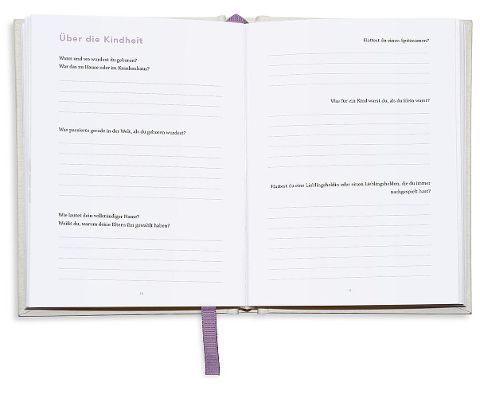 Über die Kindheit
Wann und wo wurdest du geboren?
War das zu Hause oder im Krankenhaus?
Was passierte gerade in der Welt, als du geboren wurdest?
Wie lautet dein vollständiger Name?
Weißt du, warum deine Eltern ihn gewählt haben?
Hattest du einen Spitznamen?
Was für ein Kind warst du, als du klein warst?
Hattest du eine Lieblingsheldin oder einen Lieblingshelden, die du immer
nachgespielt hast?